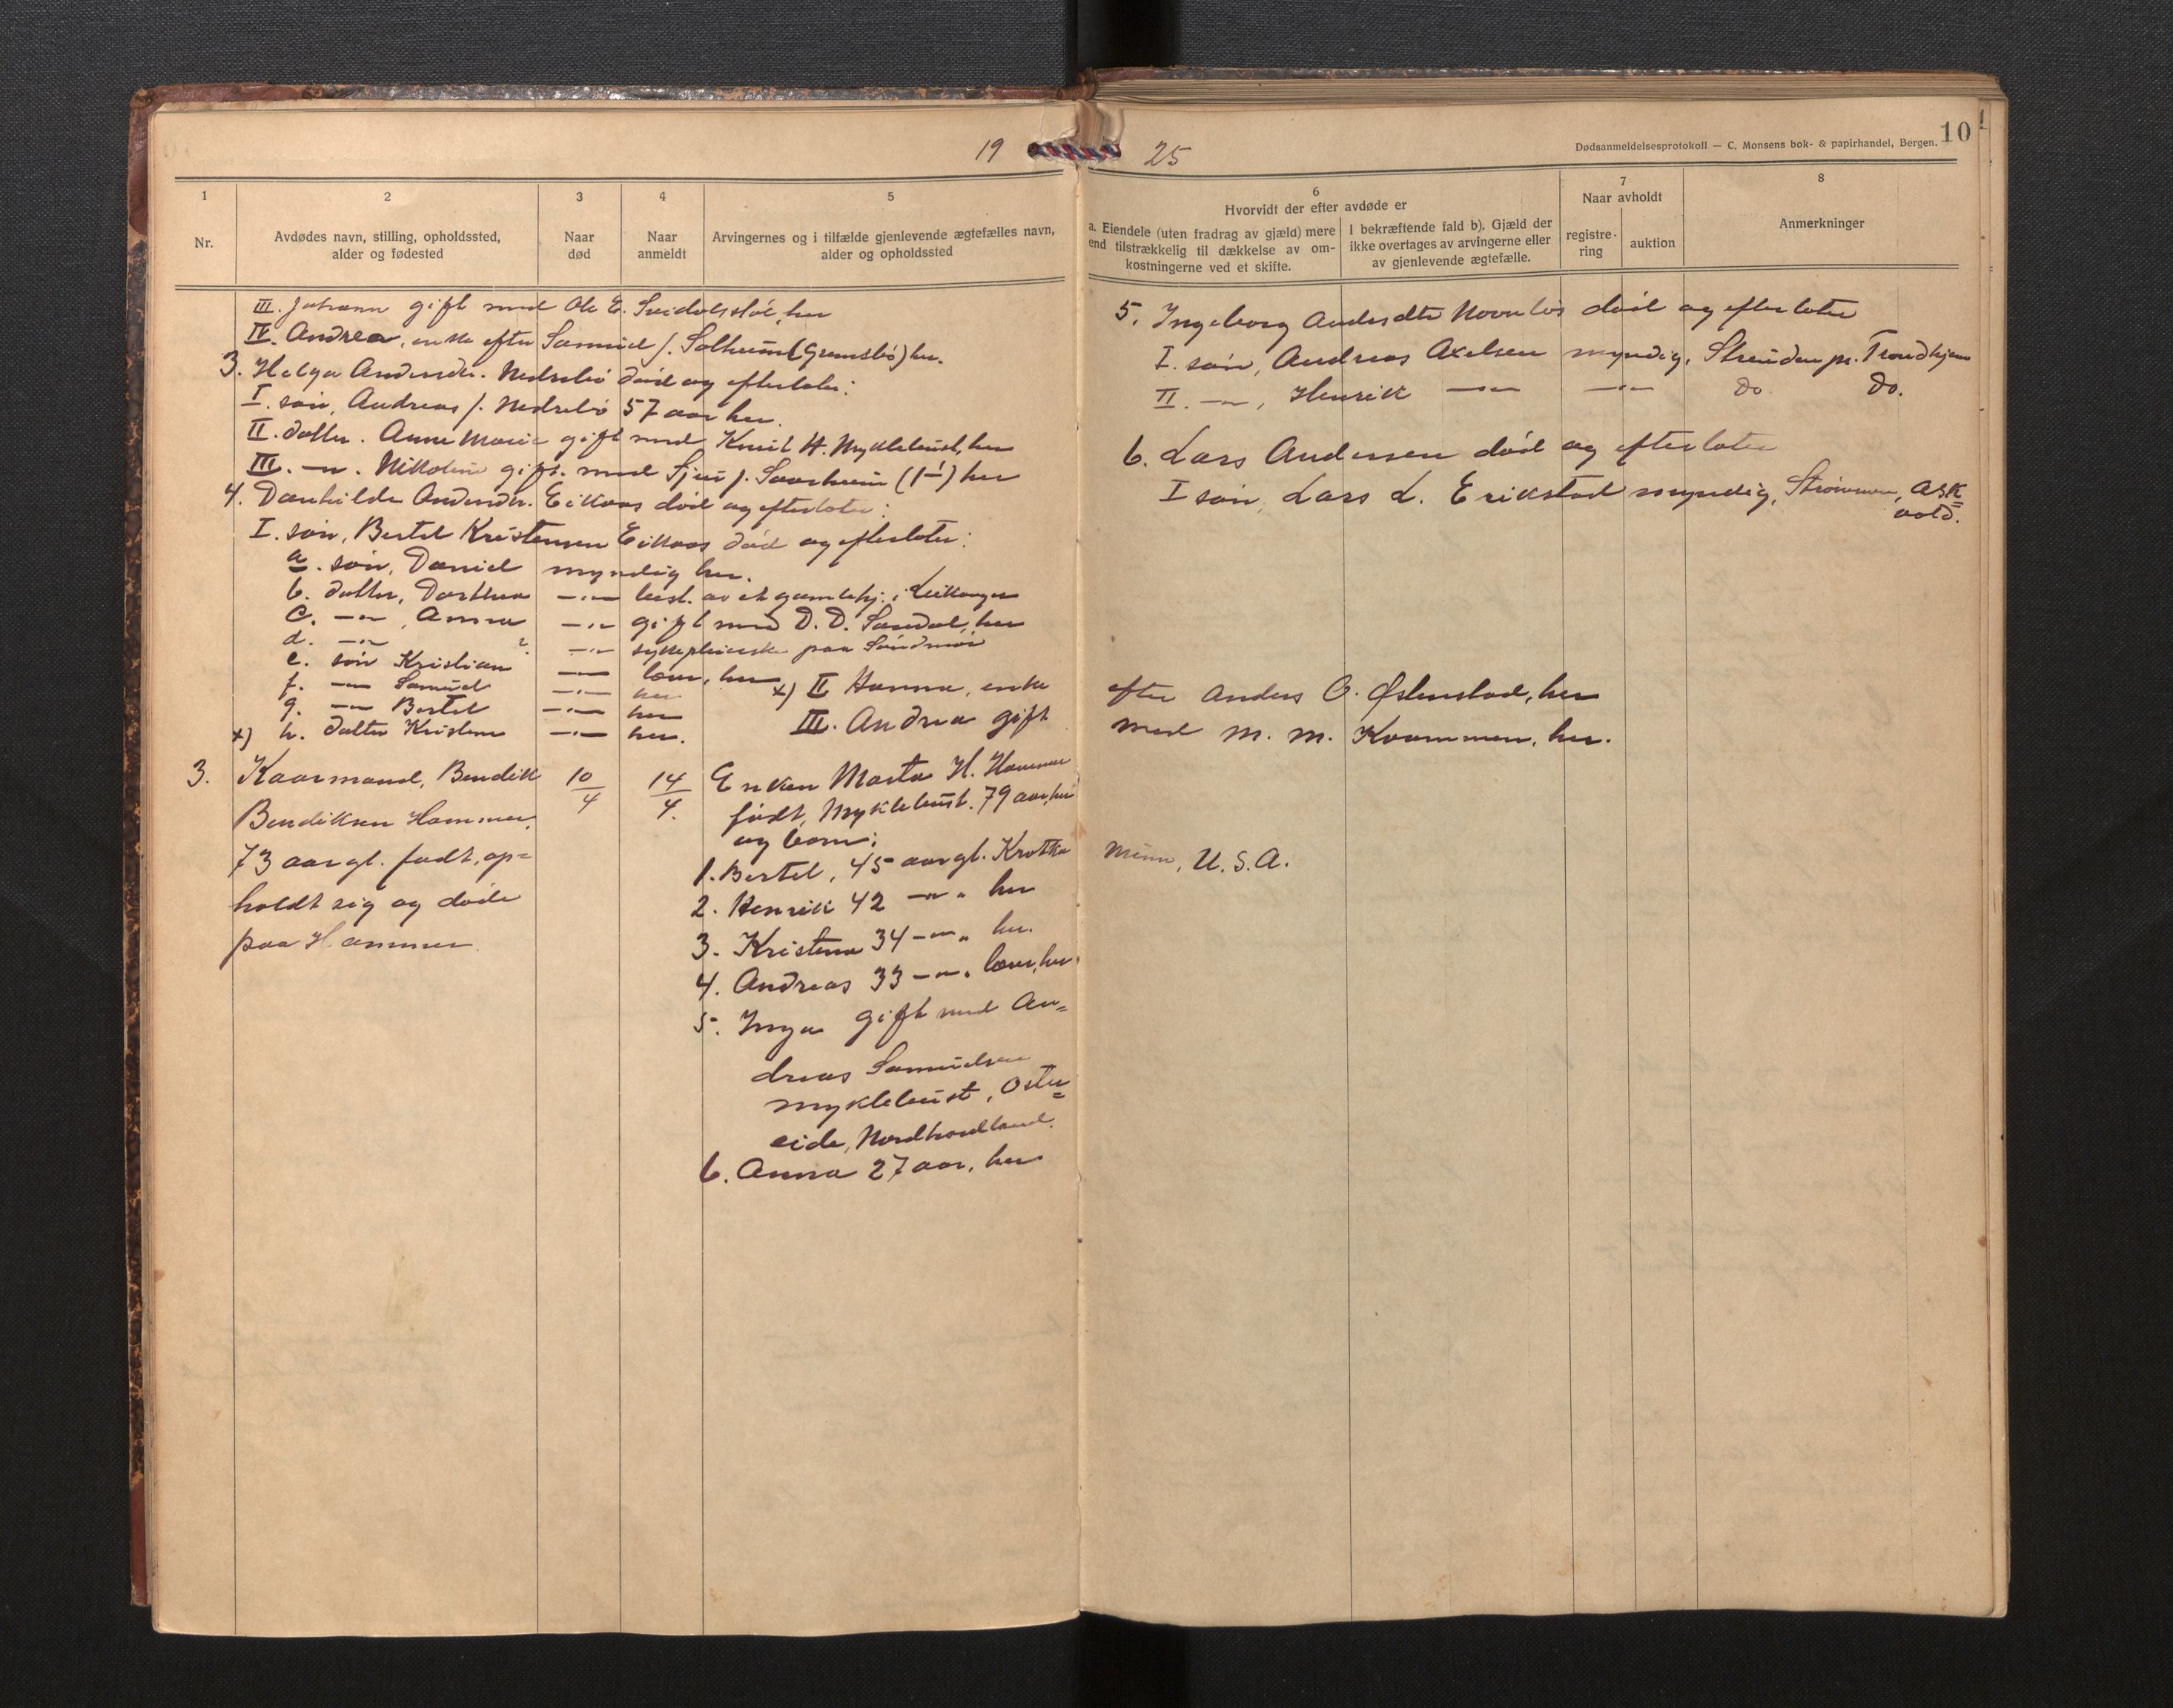 19 25
Dødsanmeldelsesprotokoll — C. Monsens bok- & papirhandel, Bergen.
10
1
2
3
4
5
Nr.
Avdødes navn, stilling, opholdssted,
alder og fødested
Naar
død
Naar
anmeldt
Arvingernes og i tilfælde gjenlevende ægtefælles navn,
alder og opholdssted
6
Hvorvidt der efter avdøde er
a. Eiendele (uten fradrag av gjæld) mere
end tilstrækkelig til dækkelse av om-
kostningerne ved et skifte.
I bekræftende fald b). Gjæld der
ikke overtages av arvingerne eller
av gjenlevende ægtefælle.
7
Naar avholdt
registre-
ring
auktion
8
Anmerkninger
III. Johanne gift med Ole E. her
IV. Andrea, enke efter Samuel J. Solheim (Grimsbö) her.
3. Helga Andersdtr. Nedrebö död og efterlater:
I. sön, Andreas J. Nedrebö 57 aar her.
II. datter. Anne Marie gift med Knut H. Myklebust, her
III. —"—. Nikoline gift. med Sjur J. Saarheim (1⁄1) her
4. Danhilde Andersdtr. Eikaas död og efterlater:
I. sön, Bertel Kristensen Eikaas död og efterlater:
a. sön, Daniel myndig her.
b. datter, Dorthea —"— best. av et gamlehj. i Leikanger
c. —"—, Anna —"— gift med D. D. Sandal, her
d. —"— ? —"— sykepleierske paa Söndmör
e. sön Kristian —"— lærer, her
f. —"— Samuel —"— her
g. —"— Bertel —"— her
x) h. datter Kristine —"— her.
x) II Hanna, enke
III. Andrea gift
3. Kaarmand, Bendik
Bendiksen Hammer,
73 aar gl. født, op=
holdt sig og döde
paa Hammer.
10/4
14/4.
Enken Marta H. Hammer
född, Myklebust. 79 aar, her
og børn:
1. Bertel, 45 aar gl.
2. Henrik 42 —"— " her
3. Kristine 34 —"— " her.
4. Andreas 33 —"— " lærer, her.
5. Inga gift med An=
dreas Samuelsen
Myklebust, Oster=
eide, Nordhordland.
6. Anna 27 aar, her
5. Ingeborg Andersdtr död og efterlater
I. sön, Andreas Axelsen myndig, Strinden pr. Trondhjem
II. —"—, Henrik —"— —"— do do.
6. Lars Andersen död og efterlater
I sön, Lars L. Erikstad myndig, Askvold.
efter Anders O. Østenstad, her
med M. M. Kvammen, her.
Minn, U.S.A.